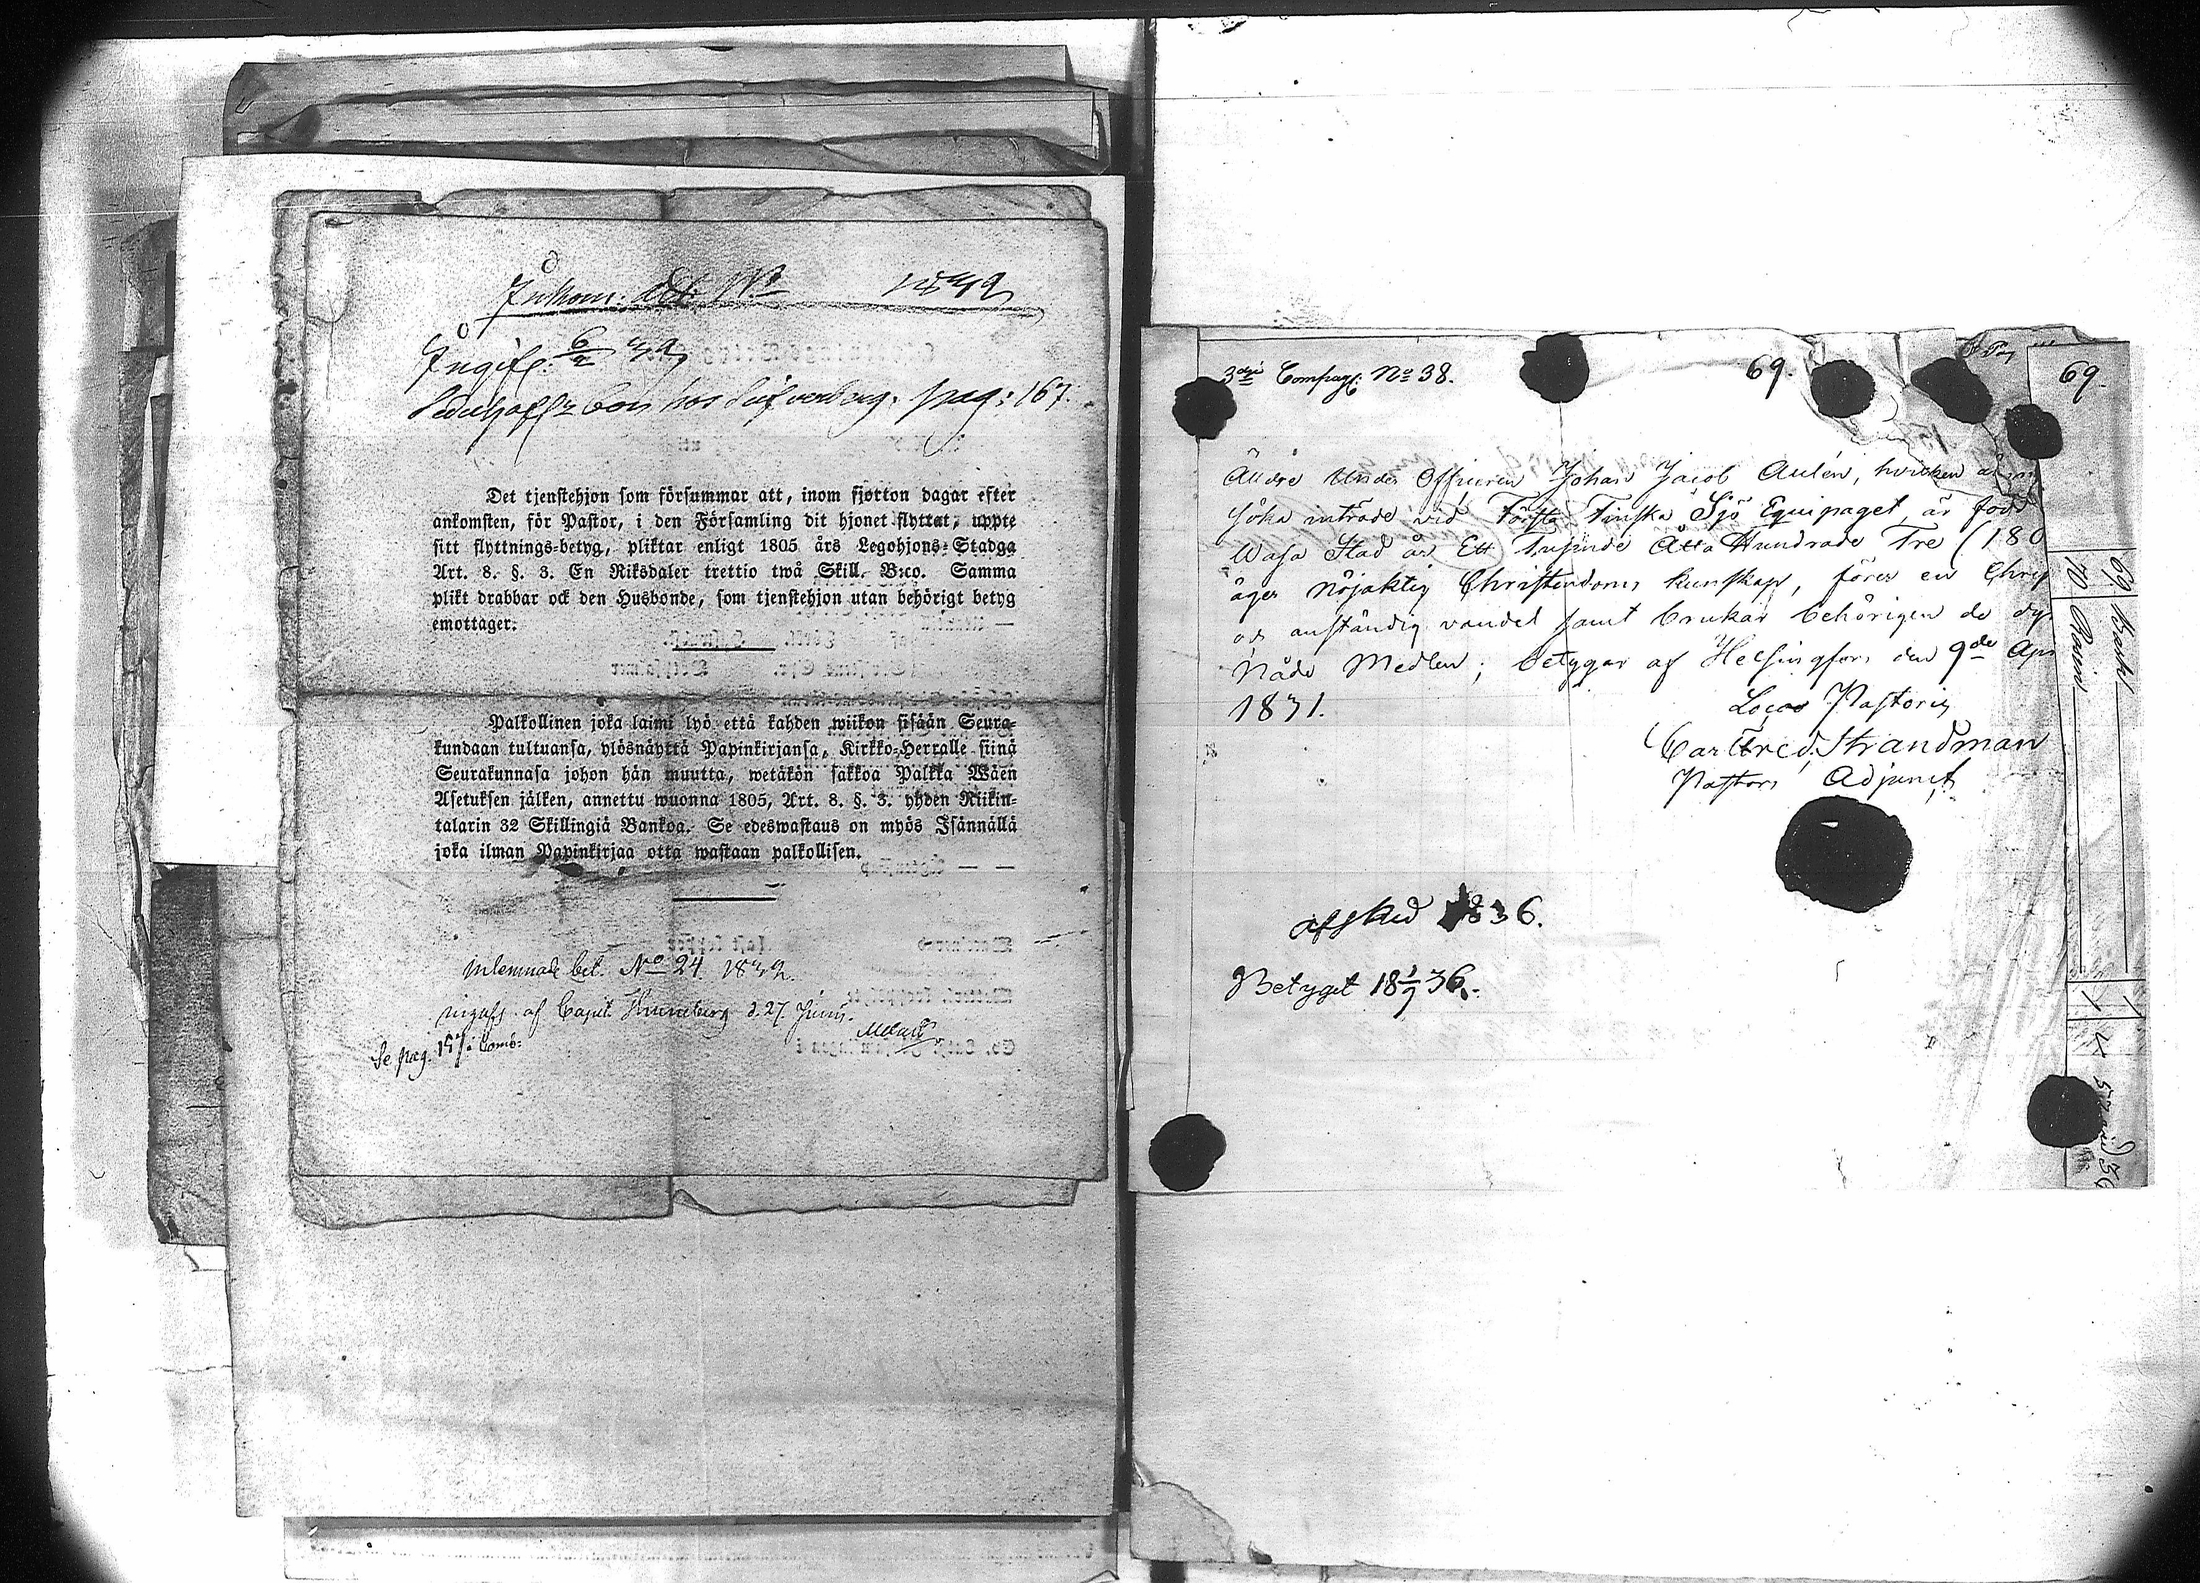 Inkom: Bet. No 1832
Ingifv. 6/2 32
bor hos Silfverberg. pag: 167.
Det tjenstehjon som försummar att, inom fjorton dagar efter
ankomsten, för Pastor, i den Församling dit hjonet flyttat, uppte
sitt flyttnings-betyg, pliktar enligt 1805 års Legohjons-Stadga
Art. 8. §. 3. En Riksdaler trettio twå Skill. B:co. Samma
plikt drabbar ock den Husbonde, som tjenstehjon utan behörigt betyg
emottager.
Palkollinen joka laimi lyö että kahden wiikon sisään Seura-
kundaan tultuansa, ylösnäyttä Papinkirjansa, Kirkko-Herralle siinä
Seurakunnasa johon hän muutta, wetäkön sakkoa Palkka Wäen
Asetuksen jälken, annettu wuonna 1805, Art. 8. §. 3. yhden Riikin-
talarin 32 Skillingiä Bankoa. Se edeswastaus on myös Isännällä
joka ilman Papinkirjaa otta wastaan palkollisen.
inlemnade bet. No 24. 1832.
af Capit. d. 27 Junii.
Se pag. 157 i Comb:
3die Compag. No 38. 69.
69.
Äldre Under Officeren Johan Jacob Aulén, hvilken
söka inträde vid Första Finska Sjö Equipaget, är född
Wasa Stad år Ett Tusende Åtta Hundrade Tre (180
äger nöjaktig Christendoms kunskap, förer en Chris
och anständig vandel samt brukar behörigen de dyr
Nåde Medlen; betygar af Helsingfors den 9de Apr
1831.
Loco Pastoris
Carl Fred. Strandman
Pastors Adjunct
afsked 1836.
Betyget 18 1/7 36.